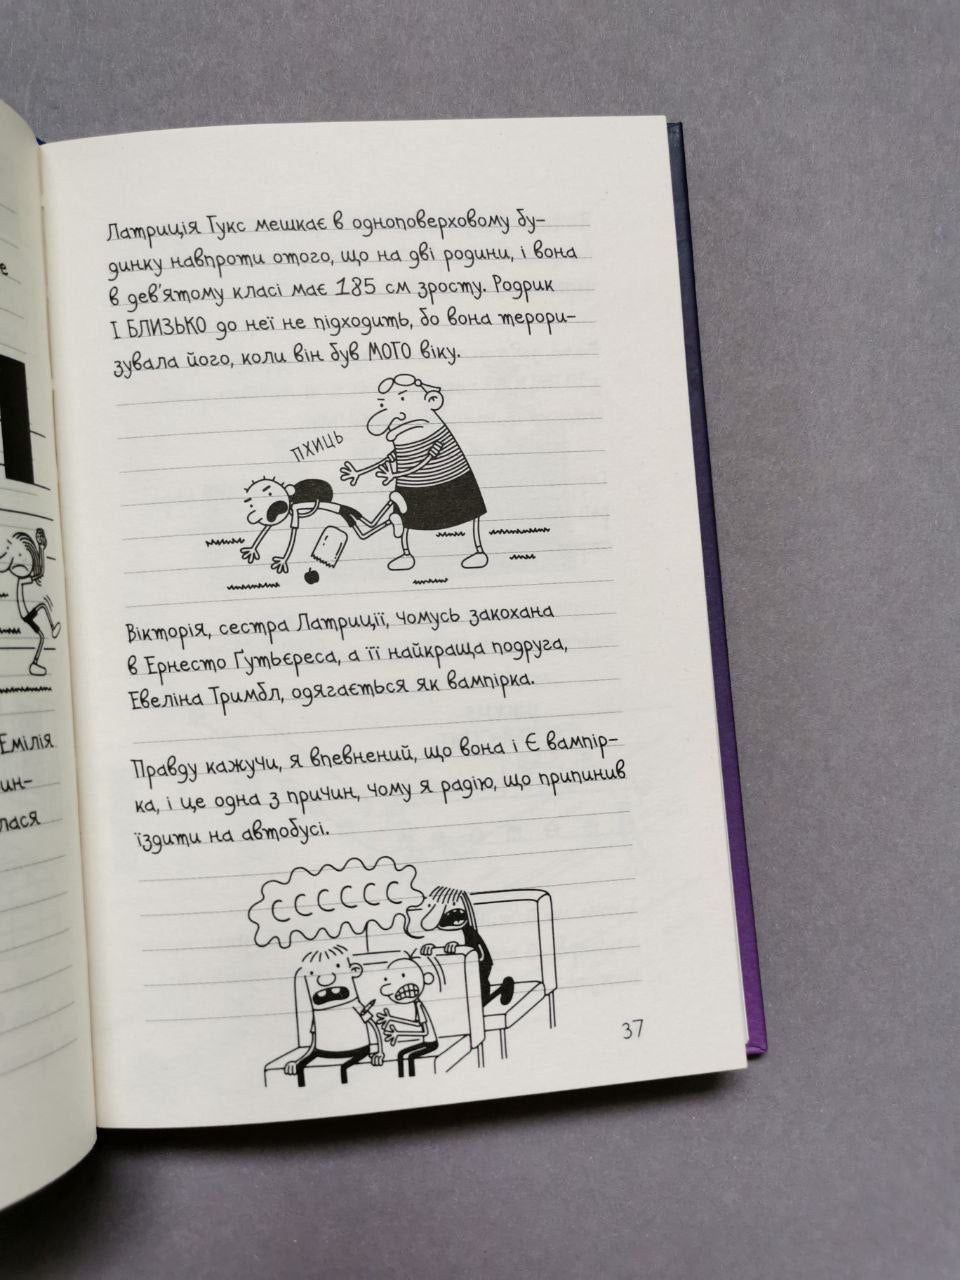 е
Емілія
ин-
лася
Латриція Гукс мешкає в одноповерховому бу-
динку навпроти отого, що на дві родини, і вона
в дев'ятому класі має 185 см зросту. Родрик
І БЛИЗЬКО до неї не підходить, бо вона терори-
зувала його, коли він був МОГО віку.
ПХИЦЬ
Вікторія, сестра Латриції, чомусь закохана
в Ернесто Ґутьєреса, а її найкраща подруга,
Евеліна Тримбл, одягається як вампірка.
Правду кажучи, я впевнений, що вона і Є вампір-
ка, і це одна з причин, чому я радію, що припинив
їздити на автобусі.
СССССС
37